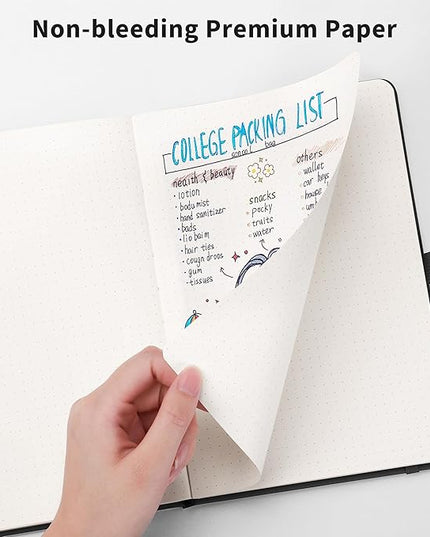 Non-bleeding Premium Paper
COLLEGE PACKING LIST
school bag
health & beauty
• lotion
• body mist
• hand sanitizer
• pads
• lip balm
• hair ties
• cough drops
• gum
• tissues
snacks
• pocky
• fruits
• water
others
• wallet
• car keys
• house